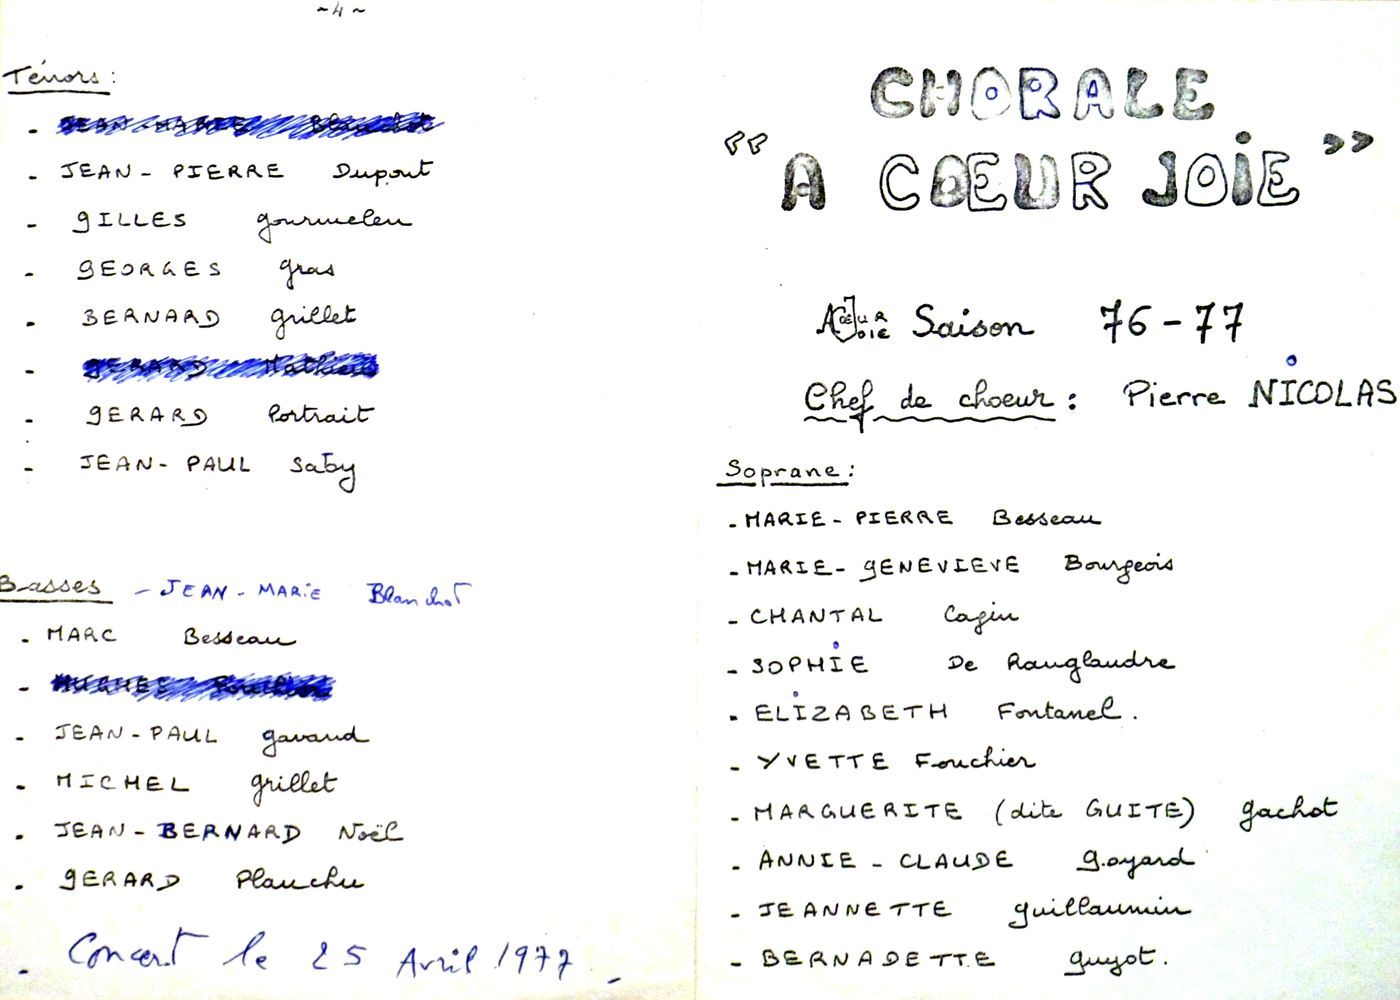 ~4~
Ténors :
- JEAN-MARIE Blanchot
- JEAN-PIERRE Dupont
- GILLES Gourmelen
- GEORGES Gras
- BERNARD Grillet
- GERARD Mathieu
- GERARD Portrait
- JEAN-PAUL Saby
Basses - JEAN-MARIE Blanchot
- MARC Besseau
- HUGUES
- JEAN-PAUL Gavand
- MICHEL Grillet
- JEAN-BERNARD Noël
- GERARD Planchu
- Concert le 25 Avril 1977 -
CHORALE
"A CŒUR JOIE"
A CŒUR JOIE Saison 76-77
Chef de choeur : Pierre NICOLAS
Soprane :
- MARIE-PIERRE Besseau
- MARIE-GENEVIEVE Bourgeois
- CHANTAL Cagin
- SOPHIE De Ranglaudre
- ELIZABETH Fontanel.
- YVETTE Fouchier
- MARGUERITE (dite GUITE) Gachot
- ANNIE-CLAUDE Goyard
- JEANNETTE Guillaumin
- BERNADETTE Guyot.